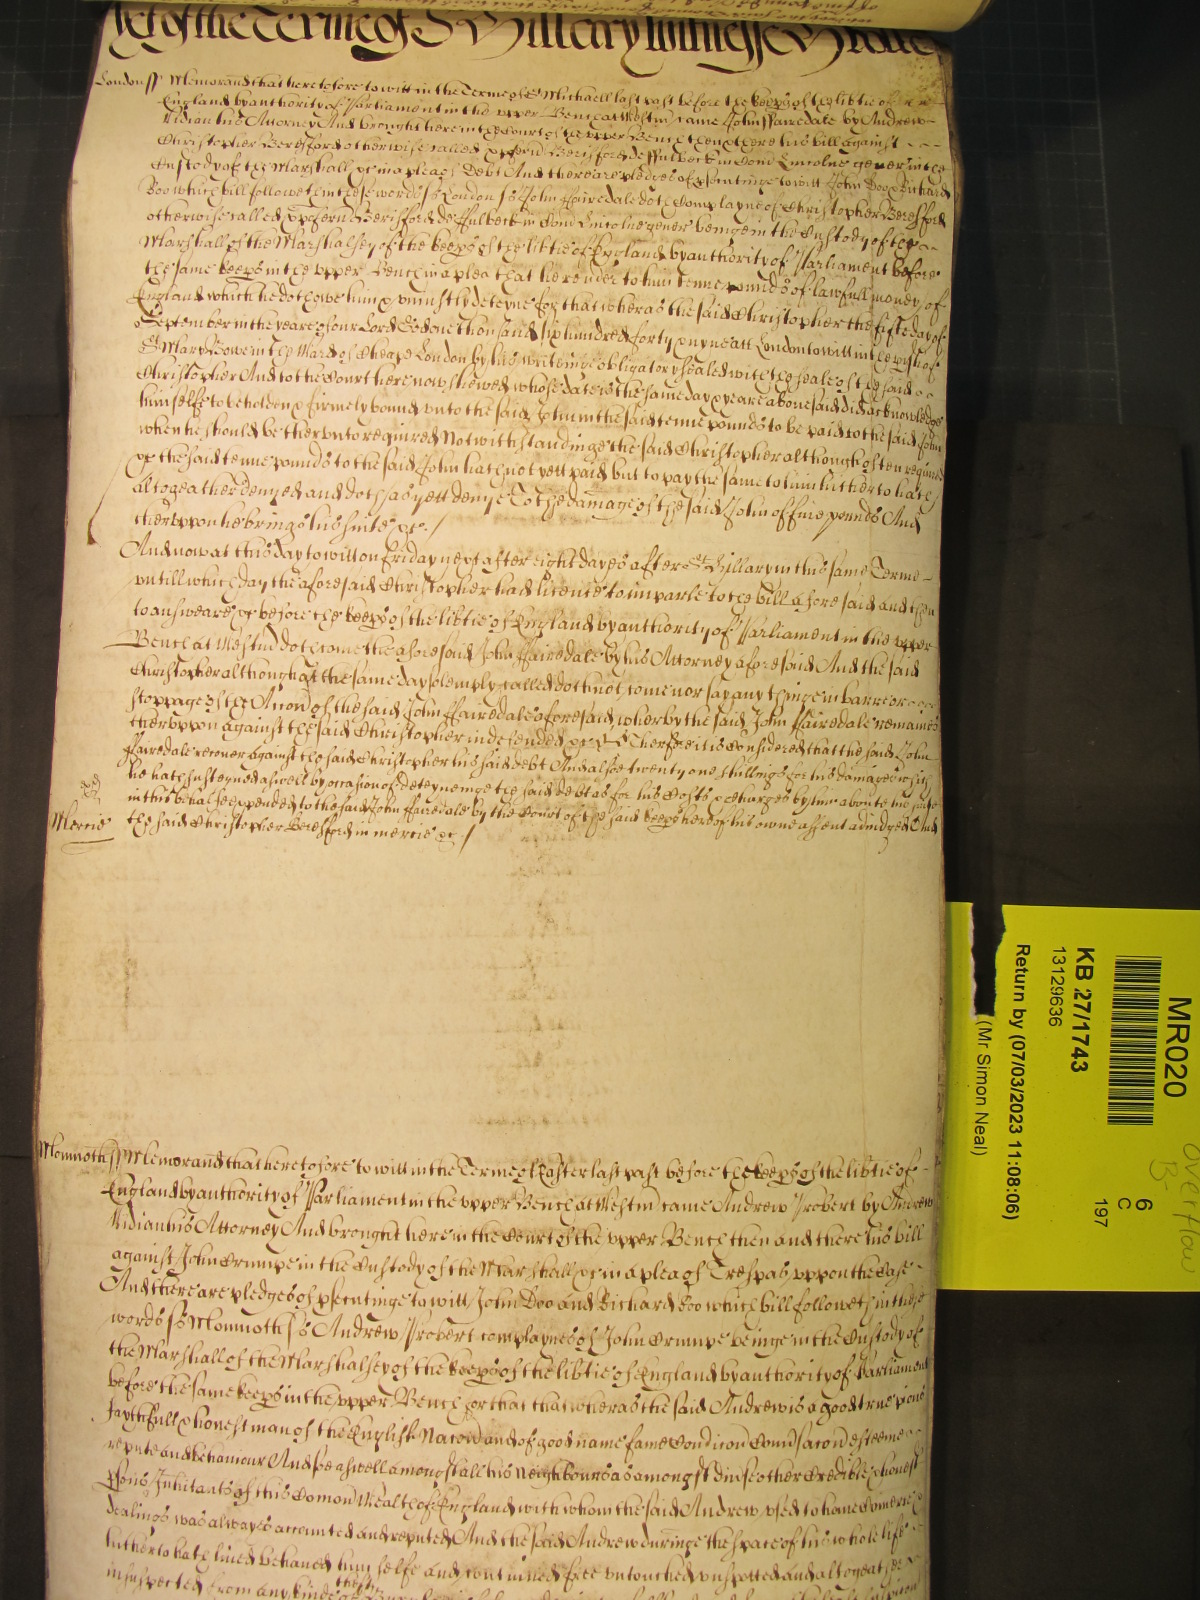 Yet of the Terme of St Hillary Witnesse Rolle
London ss Memorand that heretofore to witt in the Terme of St Michaell last past before the keeps of the libtie of
England by authority of Parliament in the upper Bench at Westm came John Ffairedale by Andrew
Vidian his Attorney And brought here in the Court of the upper Bench then there his bill against
Christopher Beresford otherwise called Beresford de ffulbeck in Com Lincolne gener in the
Custody of the Marshall &c in a plea of Debt And there are pledges of psecutinge to witt John Doo & Richard
Roo which bill followeth in these words ss London ss John Ffairedale doth Complayne of Christopher Beresford
otherwise called Berisford de ffulbeck in Com Lincolne gener beinge in the Custody of the
Marshall of the Marshalsey of the keeps of the libtie of England by authority of Parliament before
the same keeps in the upper Bench in a plea that he render to him tenne pounds of lawfull money of
England which he doth owe him & uniustly deteyne for that wheras the said Christopher the fifte day of
September in the yeare of our Lord God one thousand six hundred forty & nyne att London to witt in the pish of
St Mary Bowe in the Ward of Cheape London by his writeinge obligatory sealed with the seale of the said
Christopher And to the Court here now shewed whose date is the same day & yeare abovesaid did acknowledge
himselfe to be holden & firmely bound unto the said John in the said tenne pounds to be paid to the said John
when he should be therunto required Notwithstandinge the said Christopher although often required
&c the said tenne pounds to the said John hath not yett paid but to pay the same to him hitherto hath
altogeather denyed and doth as yett denye To the damage of the said John of five pounds And
therupon he brings his suite &c /
And now at this day to witt on Friday next after eight dayes after St Hillary in this same Terme
untill which day the aforesaid Christopher had licence to imparle to the bill aforesaid and then
to answeare &c before the keeps of the libtie of England by authority of Parliament in the upper
Bench at Westm doth come the aforesaid John Ffairedale by his Attorney aforesaid And the said
Christopher although at the same day solemply called doth not come nor say any thinge in barre or
stoppage of the Accon of the said John Ffairedale aforesaid wherby the said John Ffairedale remaines
therupon against the said Christopher indefended &c Therfore it is Considered that the said John
Ffairedale recover against the said Christopher his said debt And alsoe twenty one shillings for his damages which
he hath susteyned aswell by occasion of deteyneinge the said debt as for his Costs & Charges by him about his suite
in this behalfe expended to the said John Ffairedale by the Court of the said keeps here of his owne assent adiudged And
Mercie
the said Christopher Beresford in mercie &c /
Monmouth ss Memorand that heretofore to witt in the Terme of Easter last past before the keeps of the libtie of
England by authority of Parliament in the upper Bench at Westm came Andrew Probert by Andrew
Vidian his Attorney And brought here in the Court of the upper Bench then and there his bill
against John Crumpe in the Custody of the Marshall &c in a plea of Trespas uppon the Case
And there are pledges of psecutinge to witt John Doo and Richard Roo which bill followeth in these
words ss Monmouth ss Andrew Probert complaynes of John Crumpe beinge in the Custody of
the Marshall of the Marshalsey of the keeps of the libtie of England by authority of Parliament
before the same keeps in the upper Bench for that that wheras the said Andrew is a good true pious
faythfull & honest man of the English Nacon and of good name fame Condicon Convsacon esteeme
repute and behaviour And soe aswell amongst all his Neighbours as amongst divse other Credible & honest
psons Inhitants of this Comon Wealth of England with whom the said Andrew used to have Comerce
dealings was alwayes accounted and reputed And the said Andrew duringe the space of his whole life
hitherto hath lived behaved him selfe and continued free untouched unspotted and altogeather
unsuspected from any kinde of
MR020
KB 27/1743
13129636
Return by (07/03/2023 11:08:06)
(Mr Simon Neal)
6
C
197
overflow
B-